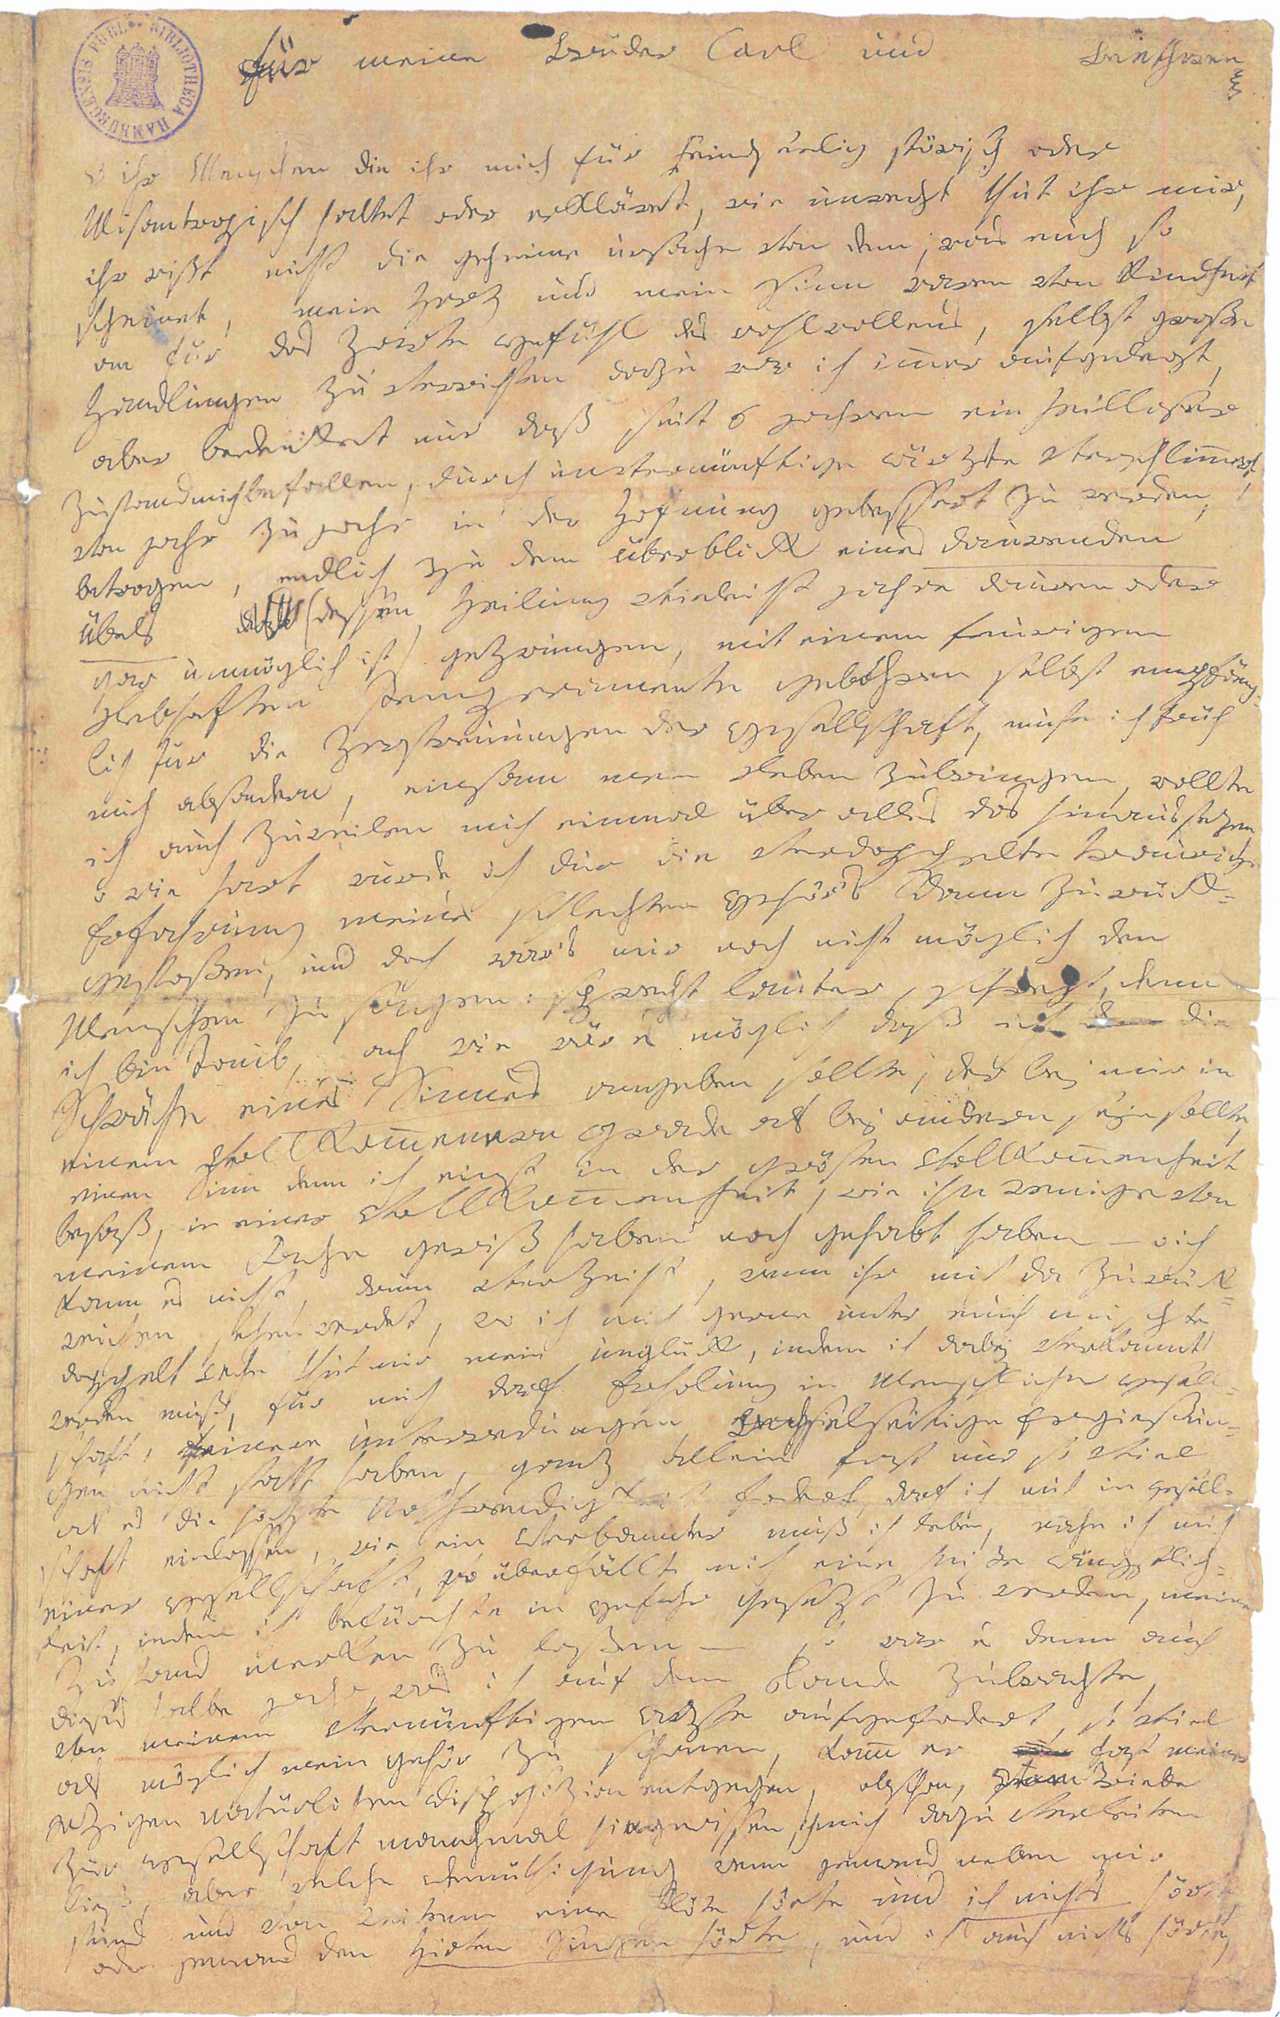 PUBL. BIBLIOTHECA HAMBURGENSIS
für meine Brüder Carl und Beethowen
o ihr Menschen die ihr mich für Feindseelig störisch oder
Misantropisch haltet oder erkläret, wie unrecht thut ihr mir,
ihr wißt nicht die geheime ursache von dem, was euch so
scheinet, mein Herz und mein Sinn waren von Kindheit
an für das Zarte gefühl des wohlwollens, selbst große
Handlungen zu verrichten dazu war ich imer aufgelegt,
aber bedenket nur daß seit 6 jahren ein heilloser
Zustand mich befallen, durch unvernünftige ärzte verschlimert,
von jahr zu jahr in der Hofnung gebessert zu werden,
betrogen, endlich zu dem überblick eines daurenden
übels (dessen Heilung vieleicht jahre dauren oder
gar unmöglich ist) gezwungen, mit einem feurigen
lebhaften Temperamente gebohren selbst empfäng-
lich für die Zerstreuungen der gesellschaft, muste ich früh
mich absondern, einsam mein Leben zubringen, wollte
ich auch zuweilen mich einmal über alles das hinaussezen,
o wie hart wurde ich dur die verdoppelte traurige
Erfahrung meines schlechten gehör's dann zurück-
gestoßen, und doch war's mir noch nicht möglich den
Menschen zu sagen: sprecht lauter, schreyt, denn
ich bin Taub, ach wie wär es möglich daß ich die
Schwäche eines Sinnes angeben sollte, der bey mir in
einem vollkomenern grade als bey andern seyn sollte,
einen Sinn denn ich einst in der grösten Vollkomenheit
besaß, in einer Vollkomenheit, wie ihn wenige von
meinem Fache gewiß haben noch gehabt haben – o ich
kann es nicht, drum verzeiht, wenn ihr mich da zurück-
weichen sehen werdet, wo ich mich gerne unter euch mischte
doppelt wehe thut mir mein unglück, indem ich dabey verkannt
werden muß, für mich darf Erholung in Menschlicher gesell-
schaft, feinere unterredungen, wechselseitige Ergießun-
gen nicht statt haben, ganz allein fast nur so viel
als es die höchste Nothwendigkeit fodert, darf ich mich in gesell-
schaft einlassen, wie ein Verbannter muß ich leben, nahe ich mich
einer gesellschaft, so überfällt mich eine heiße ängstlich-
keit, indem ich befürchte in gefahr gesezt zu werden, meinen
Zustand merken zu laßen – so war es denn auch
dieses halbe jahr, was ich auf dem Lande zubrachte,
von meinem vernünftigen Arzte aufgefodert, so viel
als möglich mein gehör zu schonen, kamm er fast meiner
jezigen natürlichen Disposizion entgegen, obschon, vom Triebe
zur gesellschaft manchmal hingerissen, ich mich dazu verleiten
ließ, aber welche demüthigung wenn jemand neben mir
stund und von weitem eine flöte hörte und ich nichts hörte
oder jemand den Hirten Singen hörte, und ich auch nichts hörte,